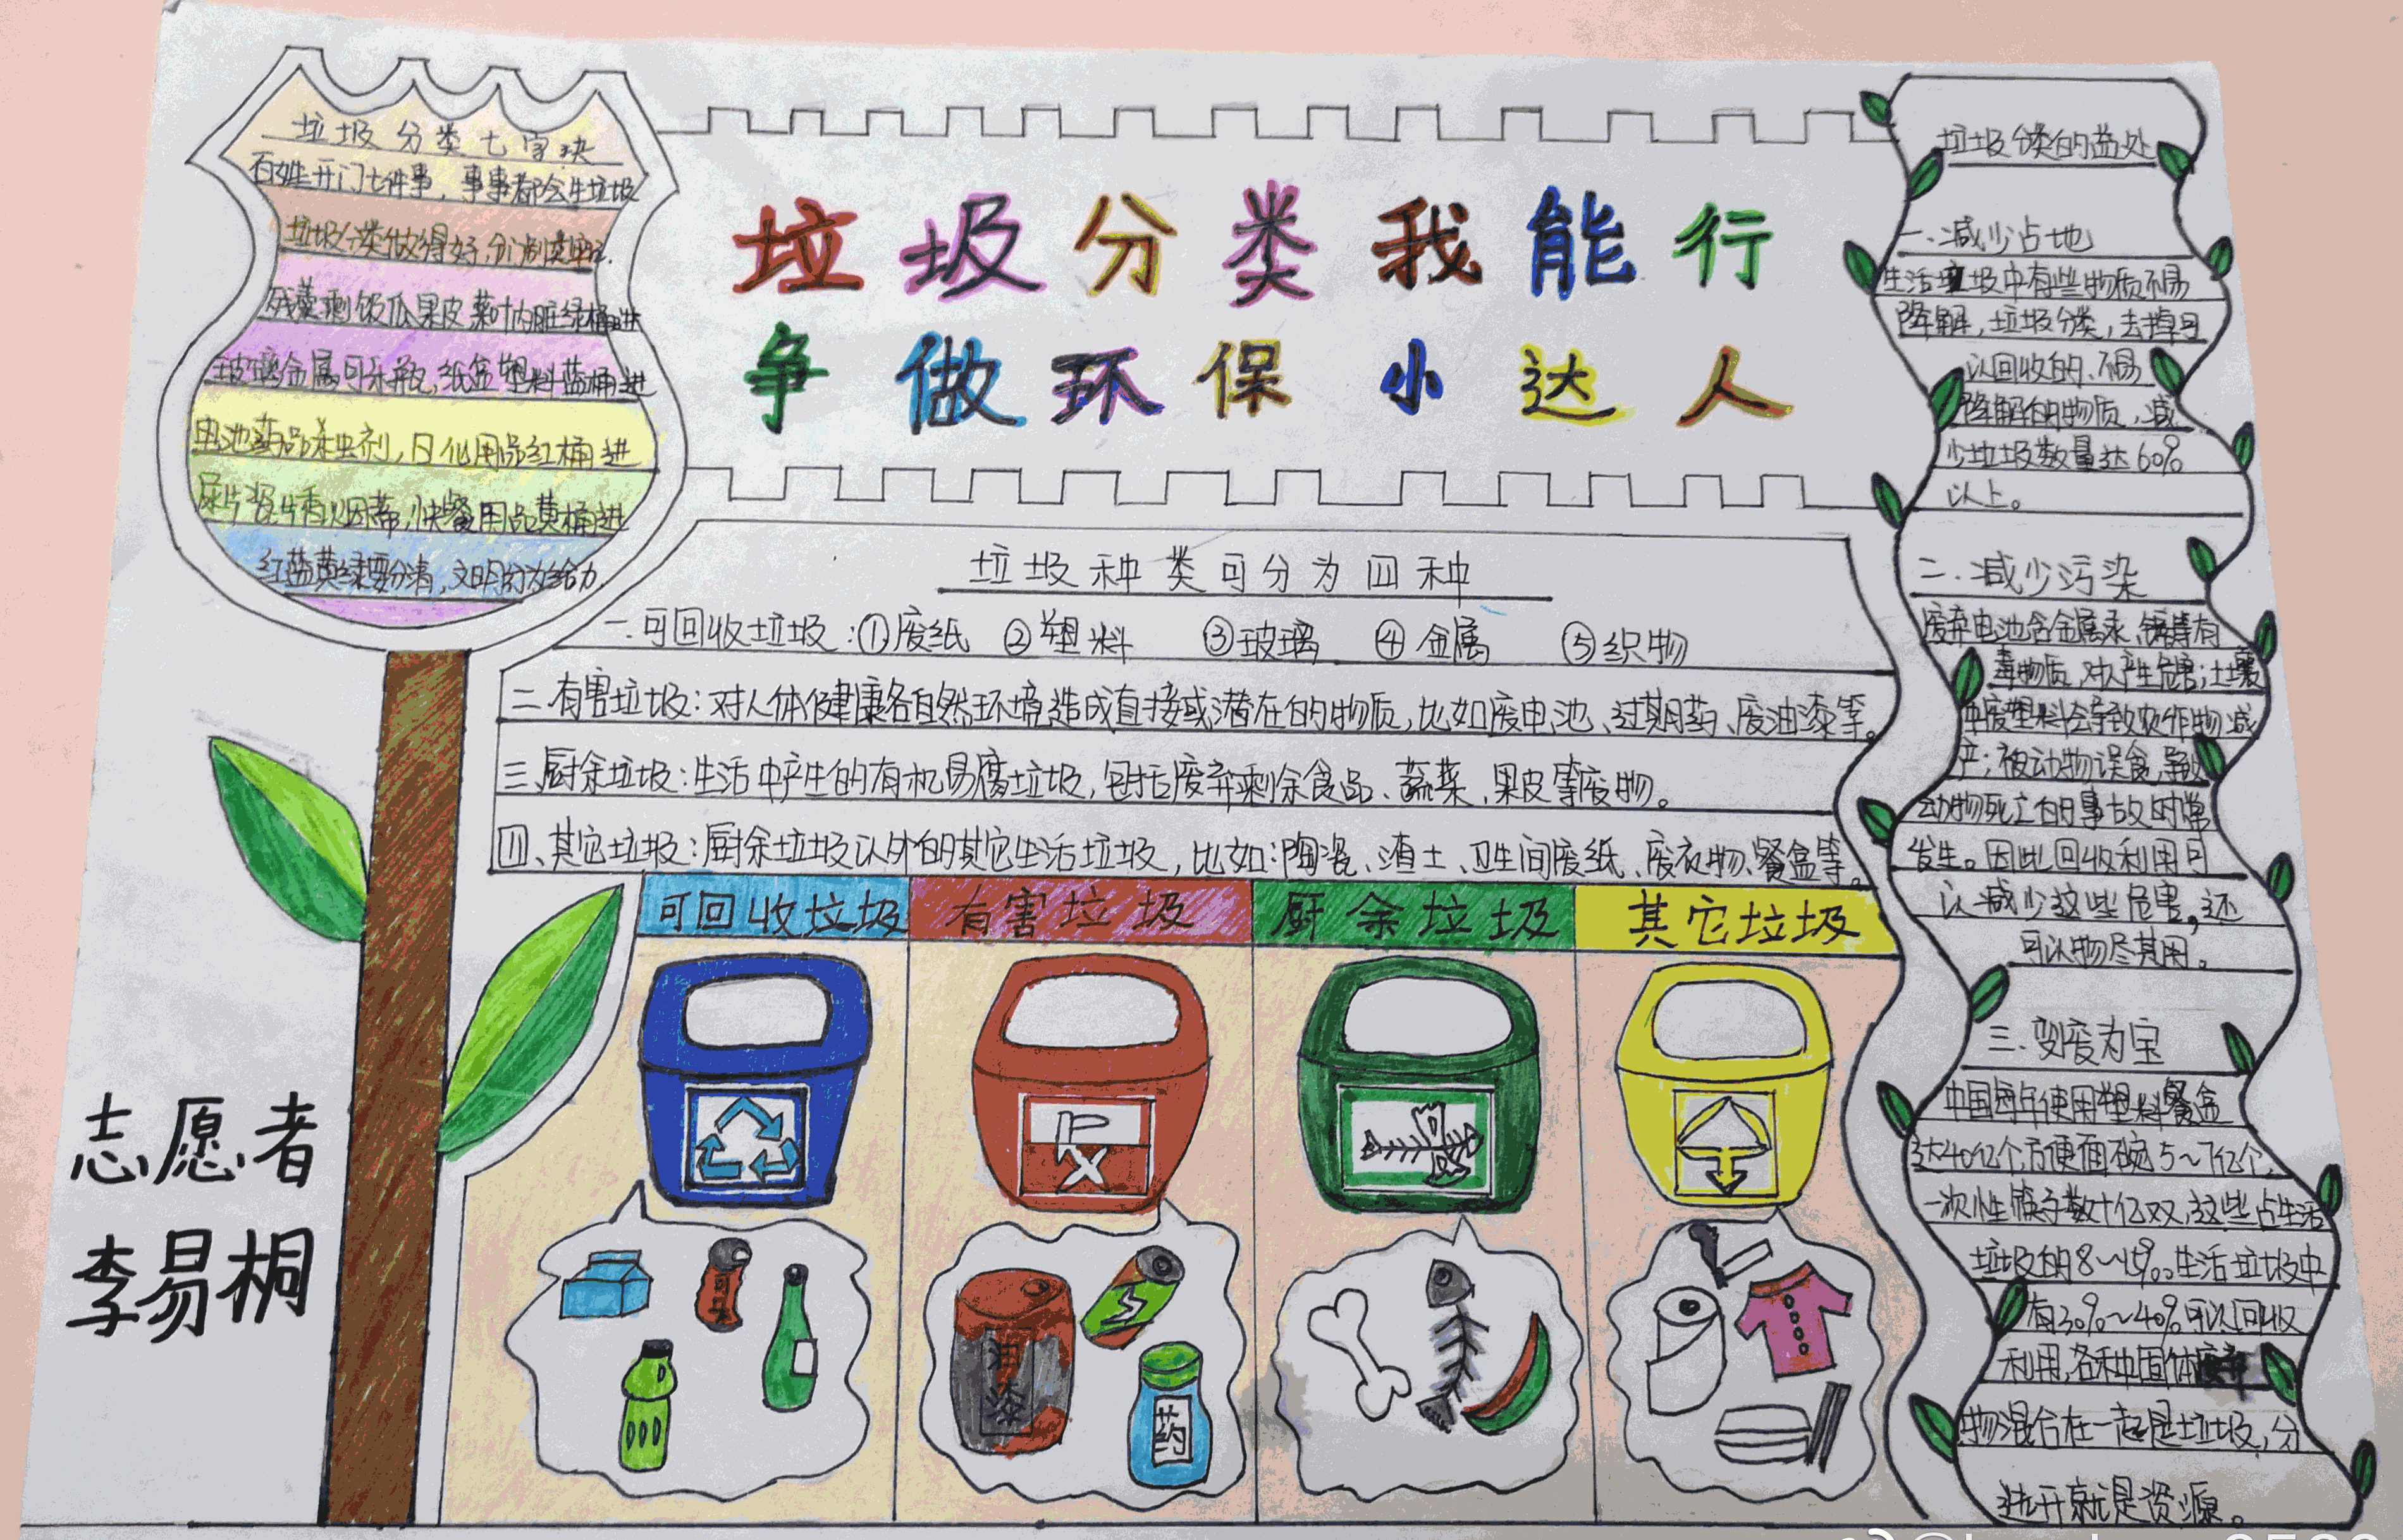 垃圾分类七字诀
百姓开门七件事，事事都会生垃圾
垃圾分类做得好，分门别类
残羹剩饭瓜果皮，菜叶内脏绿桶进
玻璃金属可乐瓶，纸盒塑料蓝桶进
电池药品杀虫剂，日化用品红桶进
尿片瓷片香烟蒂，快餐用品黄桶进
红蓝黄绿要分清，文明行为给力
垃圾分类我能行
争做环保小达人
垃圾种类可分为四种
一.可回收垃圾：①废纸 ②塑料 ③玻璃 ④金属 ⑤织物
二.有害垃圾：对人体健康各自然环境造成直接或潜在的物质，比如废电池、过期药、废油漆等。
三.厨余垃圾：生活中产生的有机易腐垃圾，包括废弃剩余食品、蔬菜、果皮等废物。
四、其它垃圾：厨余垃圾以外的其它生活垃圾，比如：陶瓷、渣土、卫生间废纸、废衣物、餐盒等。
可回收垃圾
有害垃圾
厨余垃圾
其它垃圾
油漆
药
志愿者
李易桐
垃圾分类的益处
一.减少占地
生活垃圾中有些物质不易
降解，垃圾分类，去掉可
以回收的、不易
降解的物质，减
少垃圾数量达60%
以上。
二.减少污染
废弃电池含金属汞、镉等有
毒物质，对人产生危害；土壤
中废塑料会导致农作物减
产；被动物误食，导致
动物死亡的事故时常
发生。因此回收利用可
以减少这些危害，还
可以物尽其用。
三.变废为宝
中国每年使用塑料餐盒
达40亿个方便面碗5~7亿个，
一次性筷子数十亿双，这些占生活
垃圾的8~15%。生活垃圾中
有30%~40%可以回收
利用，各种固体废弃
物混合在一起是垃圾，分
选开就是资源。